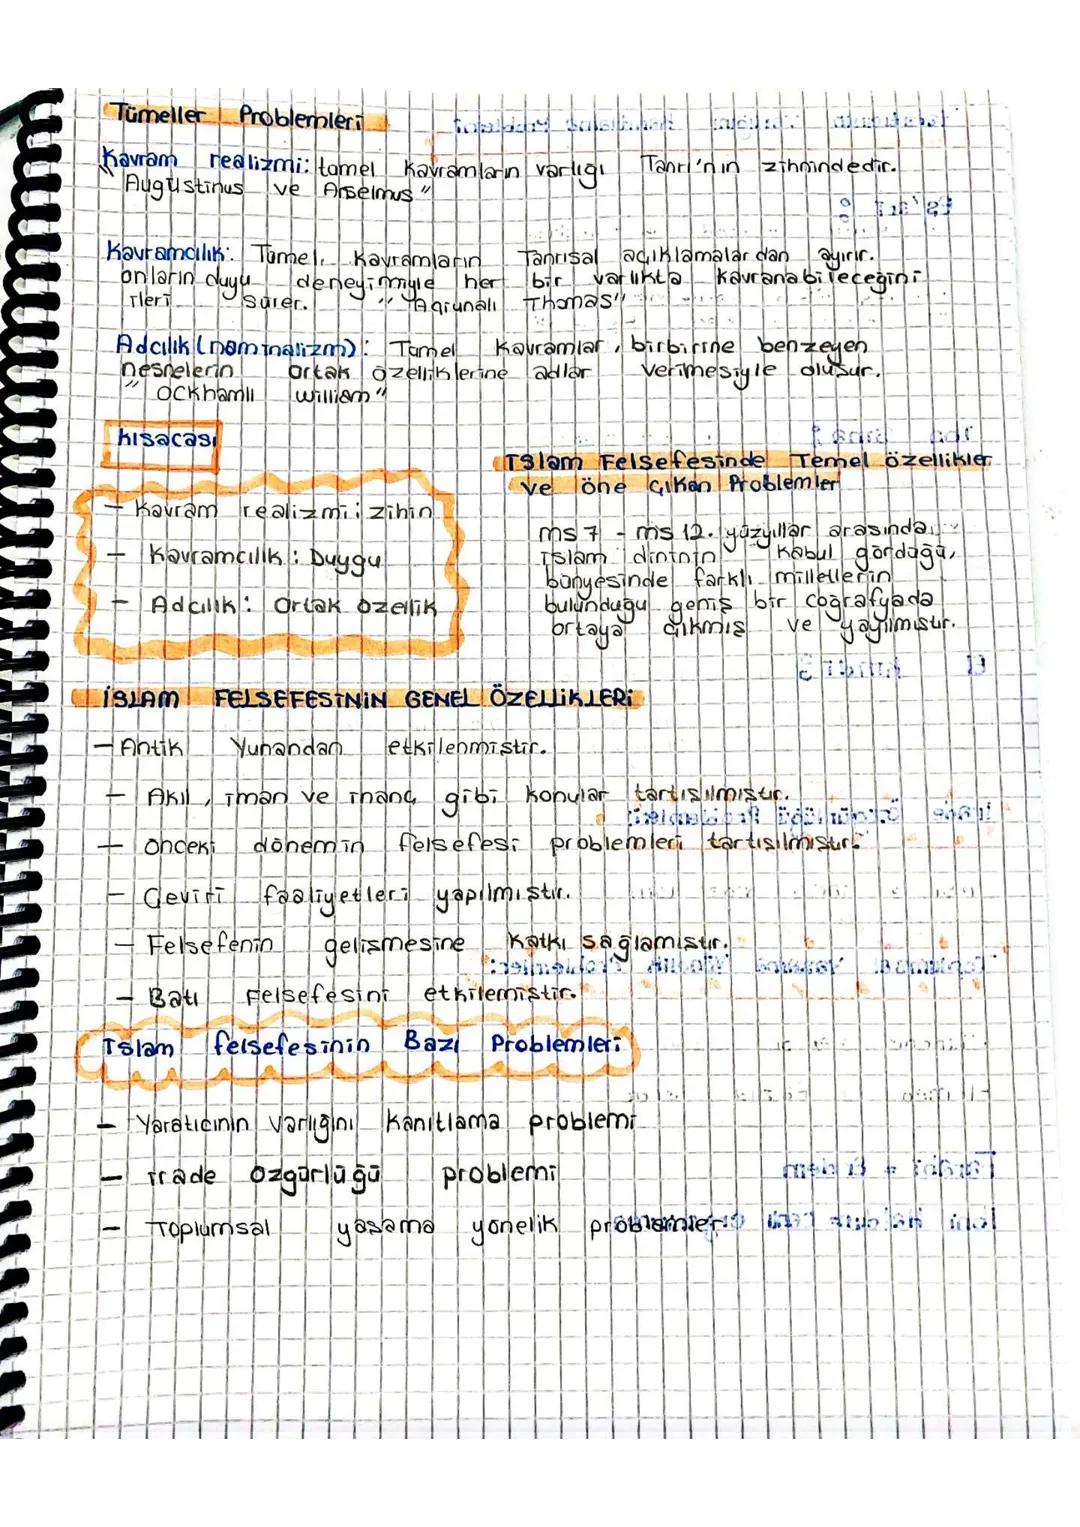 Tümeller Problemleri
Kavram realizmi: tümel kavramların varlığı Tanrı'nın zihnindedir.
"Augustinus ve Anselmus"
Kavramcılık: Tümel kavramların Tanrısal açıklamalardan ayırır.
onların duyu deneyimiyle her bir varlıkta kavranabileceğini
ileri sürer. "Aqrunalı Thomas"
Adcılık (nominalizm): Tümel kavramlar, birbirine benzeyen
nesnelerin ortak özelliklerine adlar verilmesiyle oluşur.
"Ockhamlı William"
kısacası
- Kavram realizmi: zihin
- Kavramcılık: Duygu
- Adcılık: Ortak özellik
İslam Felsefesinde Temel özellikler
ve öne Çıkan Problemler
ms 7 - ms 12. yüzyıllar arasında
İslam dininin kabul gördüğü,
bünyesinde farklı milletlerin
bulunduğu geniş bir coğrafyada
ortaya çıkmış ve yayılmıştır.
İSLAM FELSEFESİNİN GENEL ÖZELLİKLERİ
- Antik Yunandan etkilenmiştir.
- Akıl, iman ve inanç gibi konular tartışılmıştır.
- önceki dönemin felsefesi problemleri tartışılmıştır.
- Çeviri faaliyetleri yapılmıştır.
- Felsefenin gelişmesine katkı sağlamıştır.
- Batı Felsefesini etkilemiştir.
İslam felsefesinin Bazı Problemleri
- Yaratıcının varlığını kanıtlama problemi
- İrade özgürlüğü problemi
- Toplumsal yaşama yönelik problemler